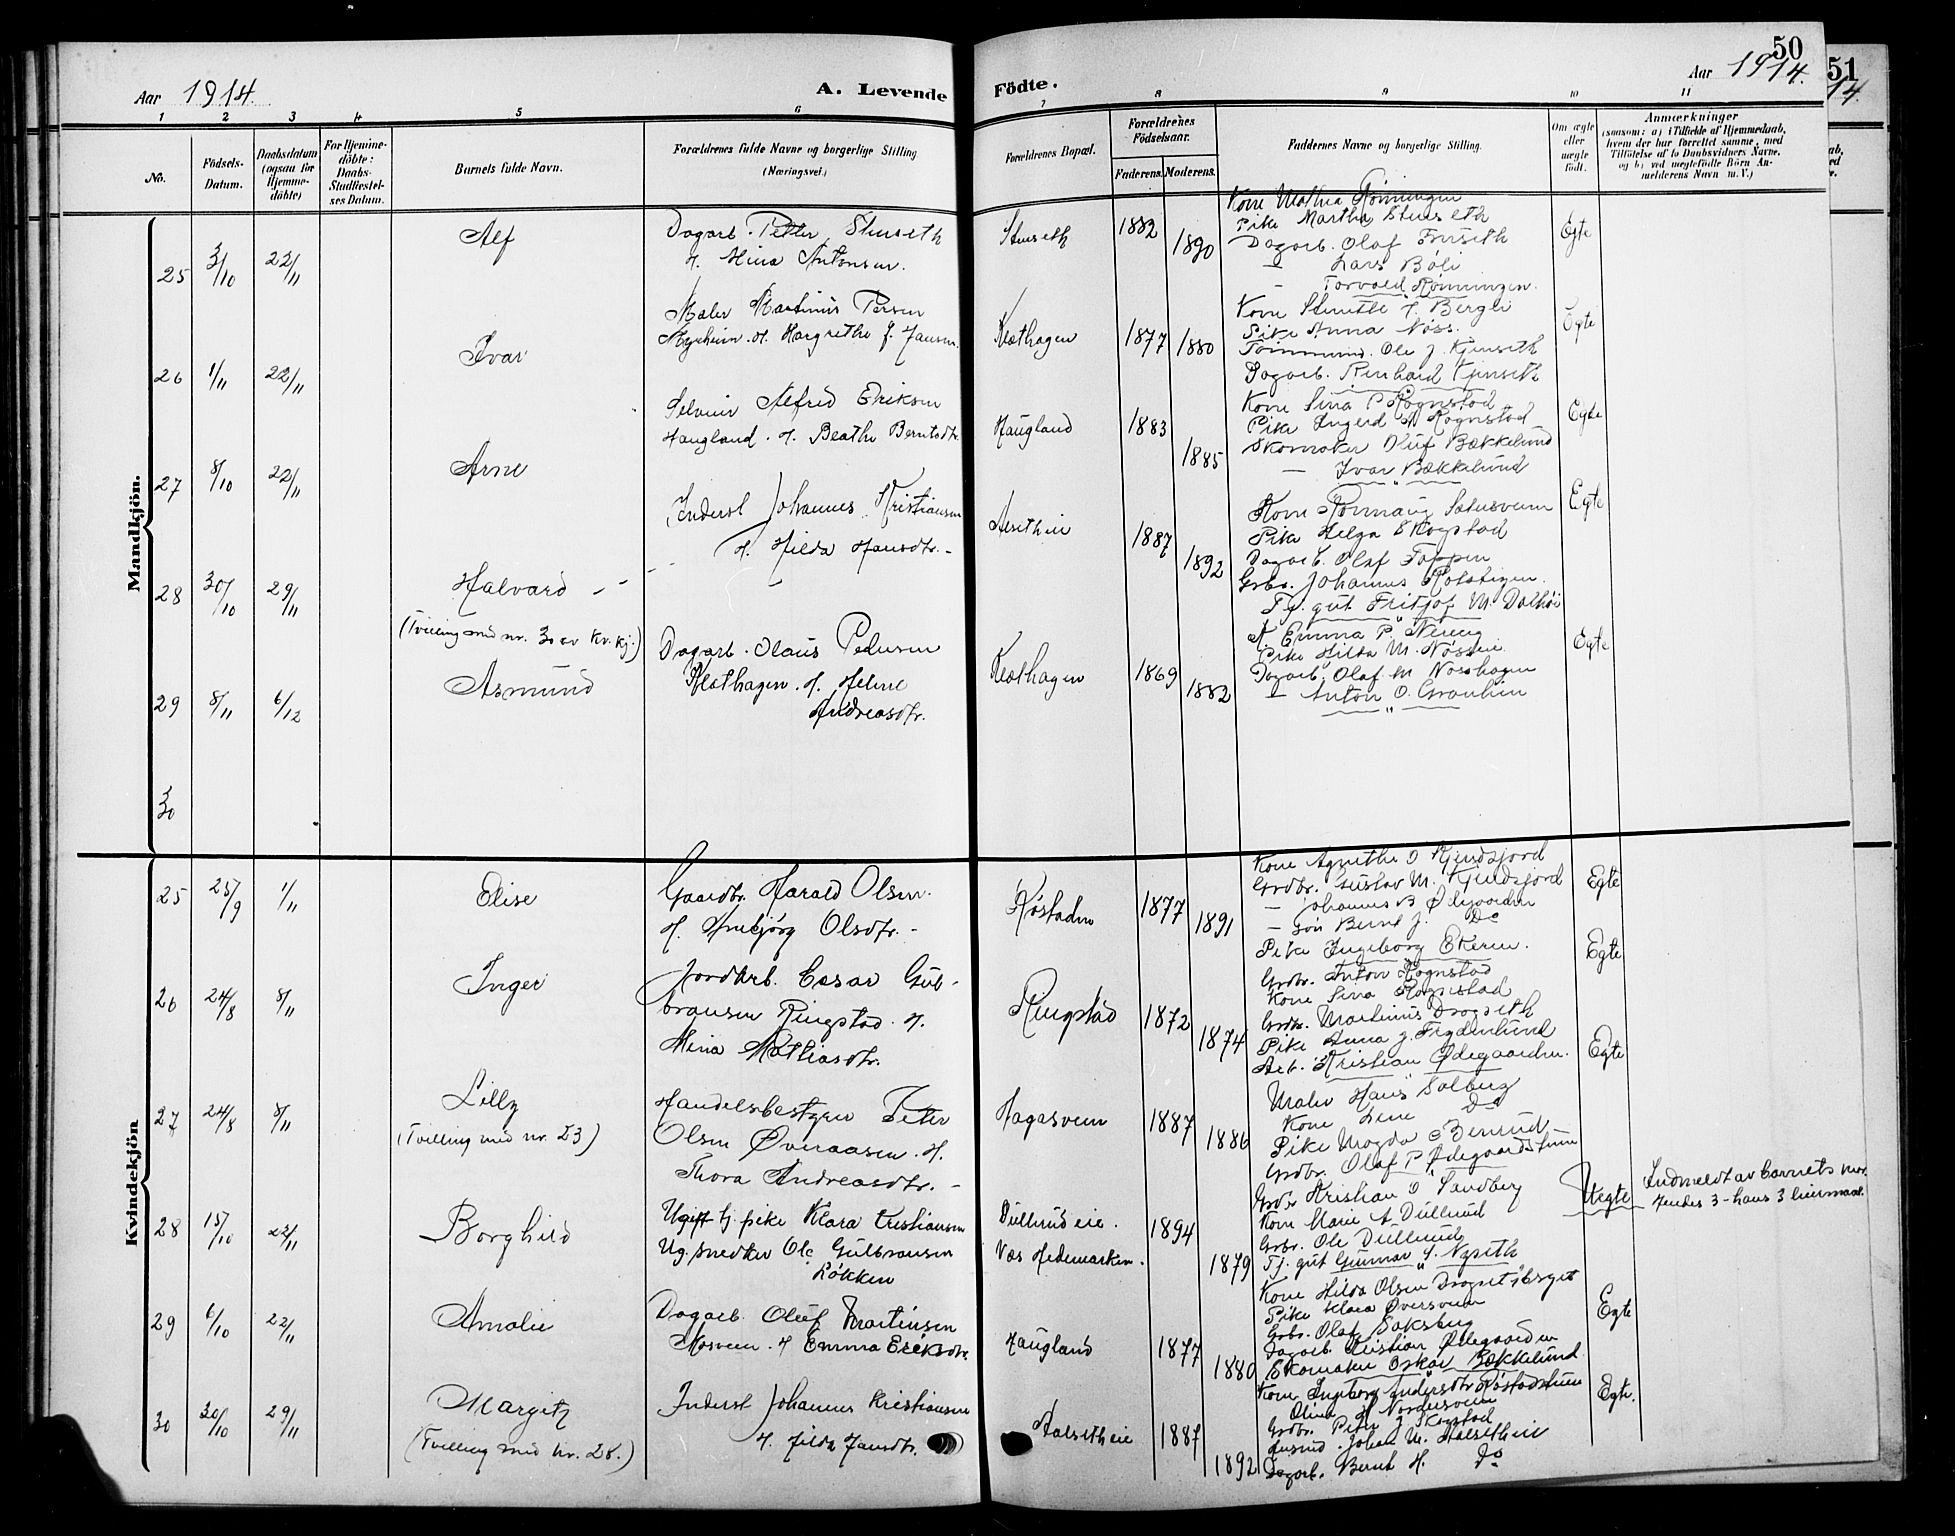 50
51
14.
Aar 1914.
A. Levende
Födte.
Aar 1914.
1 2 3 4 5 6 7 8 9 10 11
No.
Födsels-
Datum.
Daabsdatum
(ogsaa for
Hjemme-
döbte)
For Hjemme-
döbte:
Daabs-
Stadfæstel-
ses Datum.
Barnets fulde Navn.
Forældrenes fulde Navne og borgerlige Stilling
(Næringsvei.)
Forældrenes Bopæl.
Forældrenes
Födselsaar.
Faderens. Moderens.
Faddernes Navne og borgerlige Stilling.
Om ægte
eller
uægte
födt.
Anmærkninger
(saasom: a) i Tilfælde af Hjemmedaab,
hvem der har forrettet samme, med
Tilföielse af to Daabsvidners Navne,
og b) ved uægtefödte Börn An-
melderens Navn m. V.)
Mandkjön.
25 3/10 22/11
Alf
Dagarb. Petter Stenseth
H. Mina Antonsen.
Stenseth
1882
1890
Kone Mathea Rönningen
Pike Martha Stenseth
Dagarb. Olaf Furseth
— Lars Böli
— Torvald Rönningen.
Egte
26 1/11 22/11
Ivar
Maler Martinius Persen
Myrheim. H. Margrethe J. Jansen.
Klæthagen
1877
1880
Pike Anna Noss.
Tömmermd. Ole J. Kjenseth
Dagarb. Reinhard Kjenseth
Egte
27 8/10 22/11
Arne
Selveier Alfred Eriksen
Haugland. H. Beathe Berntsdtr.
Haugland
1883
1885
Kone Sina P. Rognstad
Pike Ingerd M Rognstad
Skomaker Oluf Bækkelund
— Ivar Bækkelund
Egte
28 30/10 29/11
Halvard
(Tvilling med nr. 30 av Kv.kj.)
Inderst Johannes Kristiansen
H. Hilda Hansdtr.
1887
1892
Pike Helga Skogstad
Dagarb. Olaf Toppen
Grbr. Johannes Rolstigen.
Tj. gut Fritjof M. Dalhöi
Egte
29 8/11 6/12
Asmund
Dagarb. Olaus Pedersen
Klæthagen. H. Helene
Andreasdtr.
Klæthagen
1869
1882
Pike Hilda M. Nösteie
Dagarb. Olaf M Nosshagen
— Anton O. Granheim
Egte
30
Kvindekjön
25 25/9 1/11
Elise
Gaardbr. Harald Olsen.
H. Ambjörg Olsdtr.
Röstaden
1877
1891
Kone Agnethe O Kjendsjord
Grdbr. Gustav M. Kjendsjord
— Johannes B Ödegaarden
— Sön Bernt J. Do
Pike Ingeborg Ekeren.
Egte
26 24/8 8/11
Inger
Jordarb. Cesar Gul-
bransen Ringstad. H.
Mina Mathiasdtr.
Ringstad
1872
1874
Grdbr. Anton Rognstad
Kone Sina Rognstad
Grdbr. Martinius Dragseth
Pike Anna J. Frydenlund
Arb. Kristian Ödegaarden.
Egte
27 24/8 8/11
Lilly
(Tvilling med nr. 23)
Handelsbestyrer Peter
Olsen Överaasen. H.
Thora Andreasdtr.
Hagasveen
1887
1886
Maler Hans Solberg
Kone Lene Do
Pike Magda Benrud
Grdbr. Olaf P. Ödegaardstuen
Egte
28 15/10 22/11
Borghild
Ugift tj. pike Klara Kristiansen
Ug. snedker Ole Gulbransen
Løkken
Dullerud eie.
Væs Hedemarken.
1894
1879
Grdbr Kristian O Sandberg
Kone Marie A. Dullerud
Grbr. Ole Dullerud
Tj. gut Gunnar J. Nyseth
Uegte
Indmeldt av barnets mor.
Hendes 3 - hans 3 leiermaal.
29 6/10 22/11
Amalie
Dagarb. Oluf Martinsen
Mosveen. H Emma Eriksdtr.
Haugland
1877
1880
Kone Hilda Olsen Dragsetsberget
Pike Klara Översveen
Grbr. Olaf Saksberg
Dagarb. Kristian Ödegaarden
Skomaker Oskar Bækkelund
Egte
30 30/10 29/11
Margit
(Tvilling med nr. 28.)
Inderst Johannes Kristiansen
H. Hilda Hansdtr.
Aalsetheie
1887
1892
Kone Ingeborg Andersdtr Röstadstuen
Oline H Nordersveen
Grdbr. Peter J Skogstad
Johan M. Aalsetheie
Dagarb. Bernt H. Do
Egte.